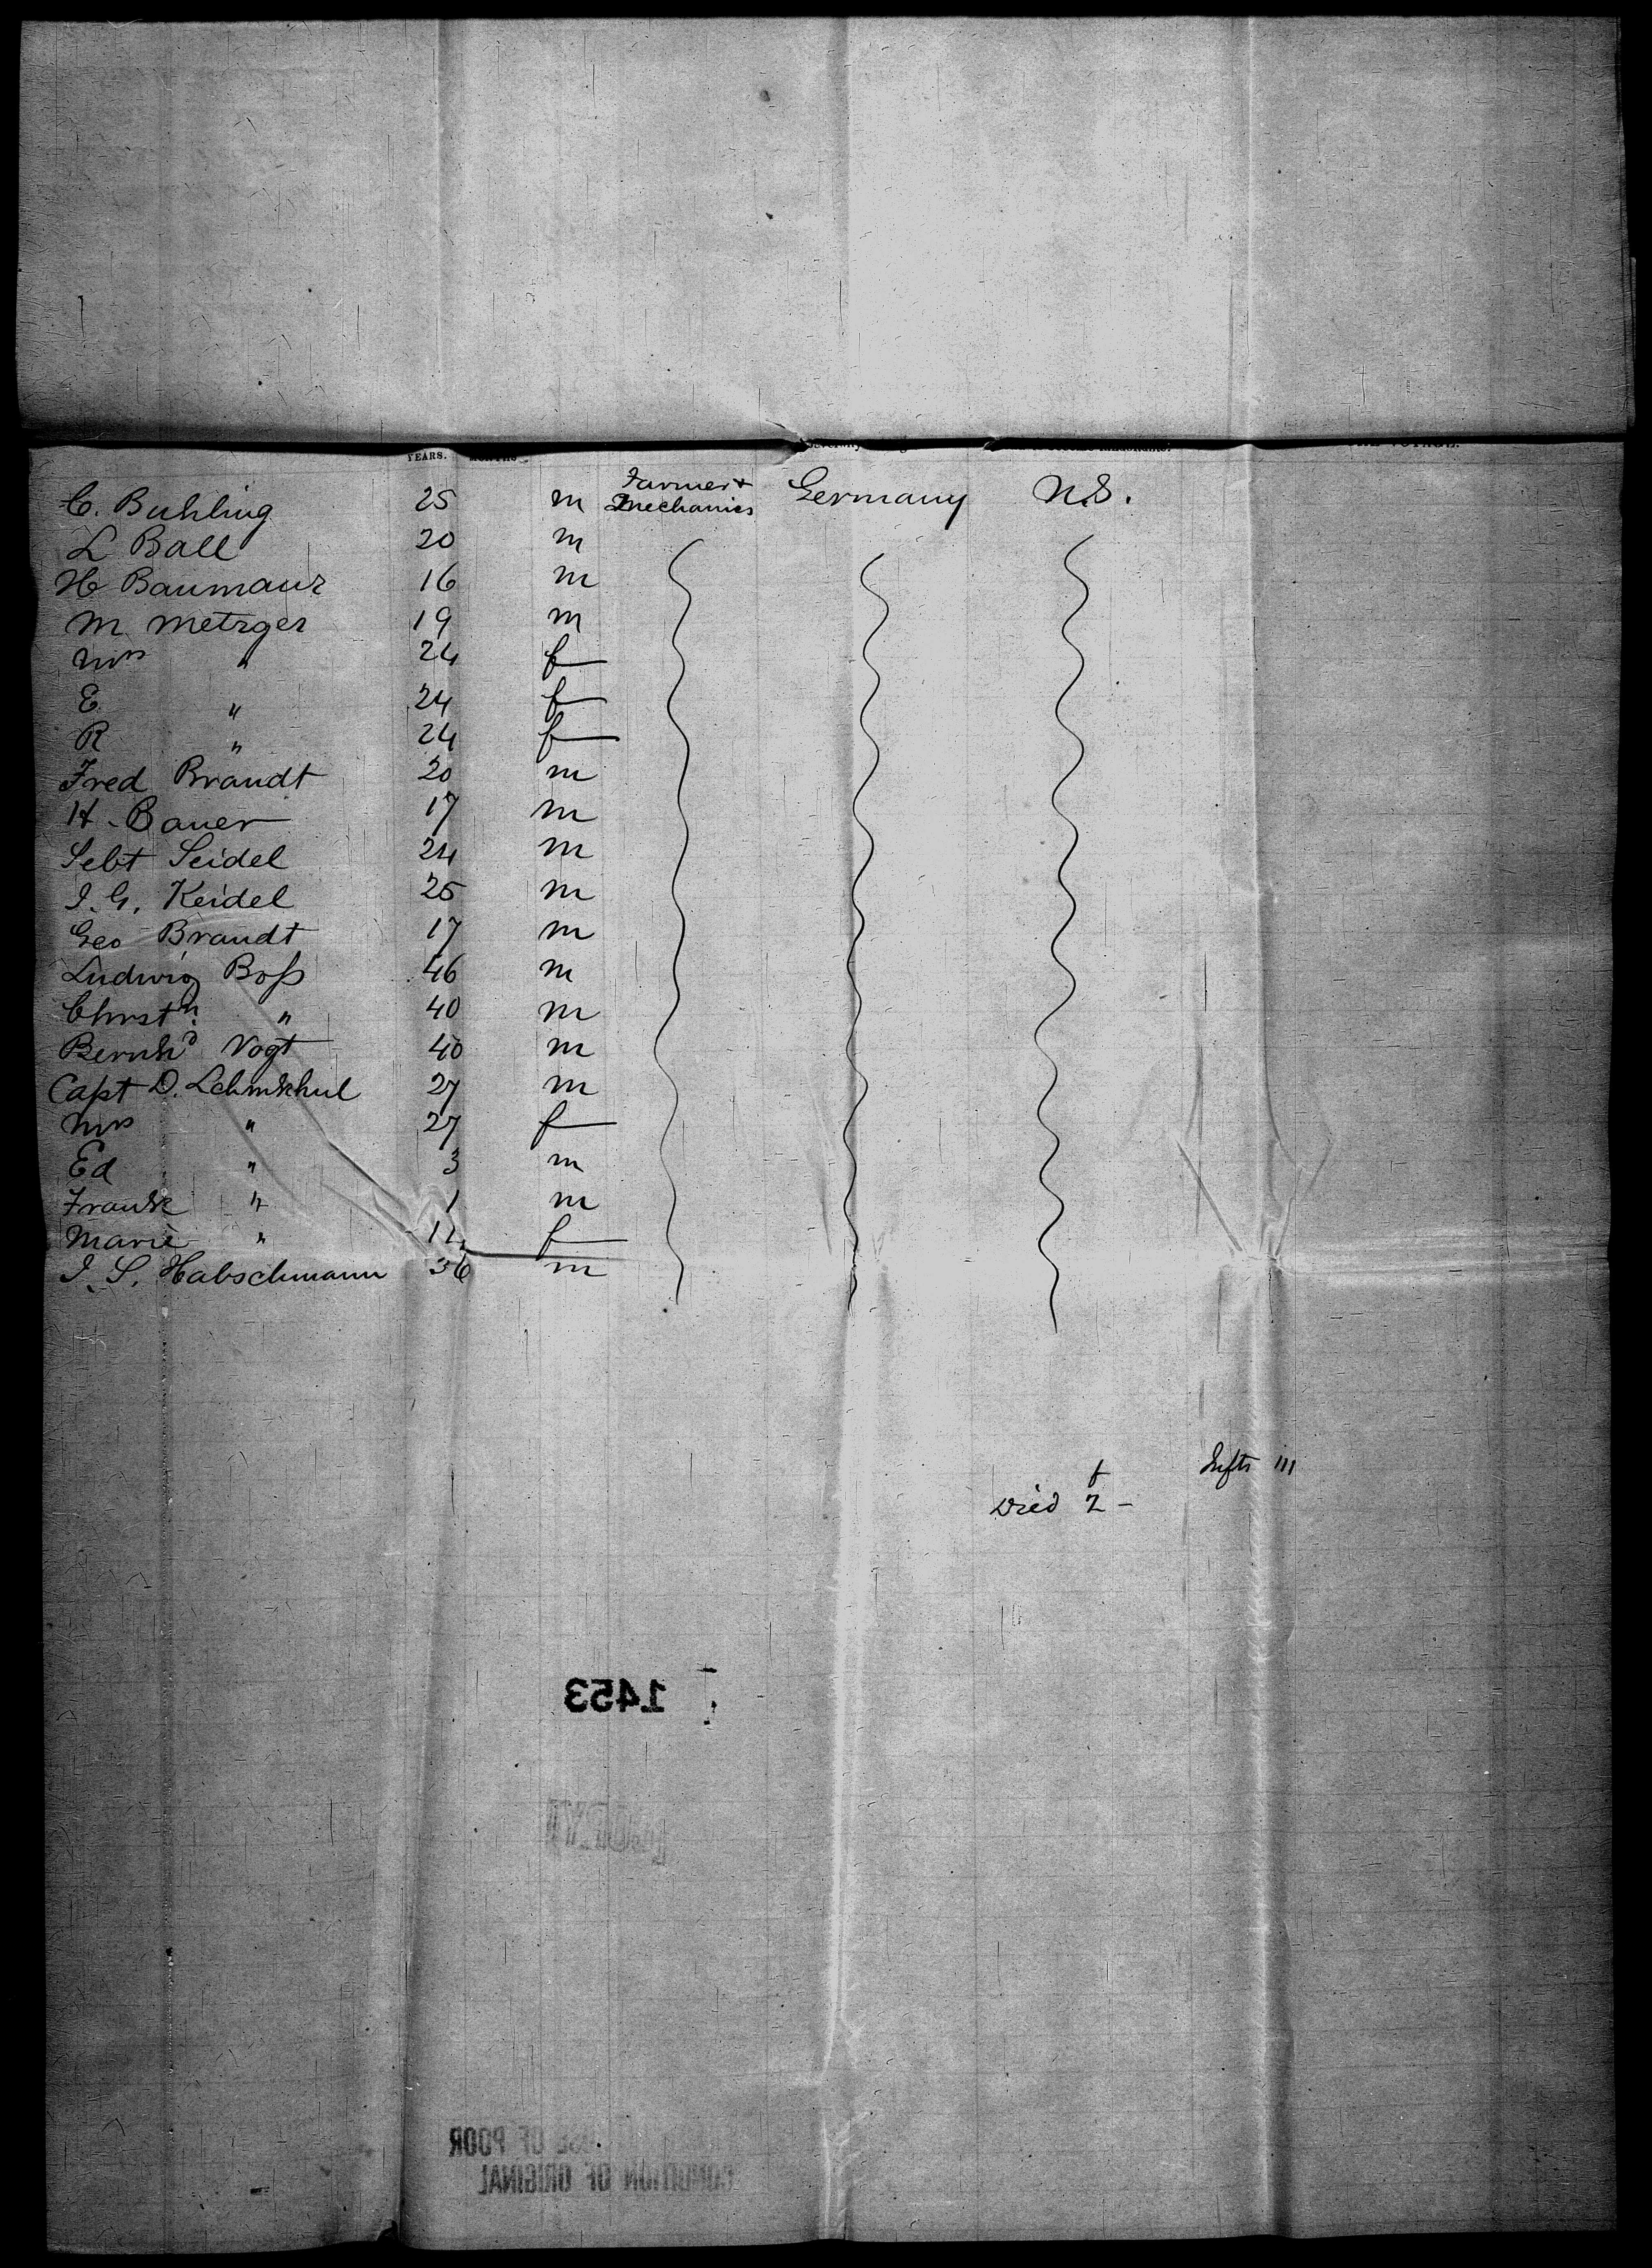 YEARS. MONTHS
C. Buhling 25 m Farmer + Mechanics Germany U.S.
L Ball 20 m
H Baumann 16 m
M Metzger 19 m
Mrs " 24 f
E " 24 f
R " 24 f
Fred Brandt 20 m
H. Bauer 17 m
Sebt Seidel 24 m
I. G. Keidel 25 m
Geo Brandt 17 m
Ludwig Boſs 46 m
Chrstn " 40 m
Bernhd Vogt 40 m
Capt D. Lehmkhul 27 m
Mrs " 27 f
Ed " 3 m
Frank " 1 m
Marie " 11 f
I. S. Habschmann 36 m
Infts m
f
Died 2 -
1453
OF POOR
CONDITION OF ORIGINAL